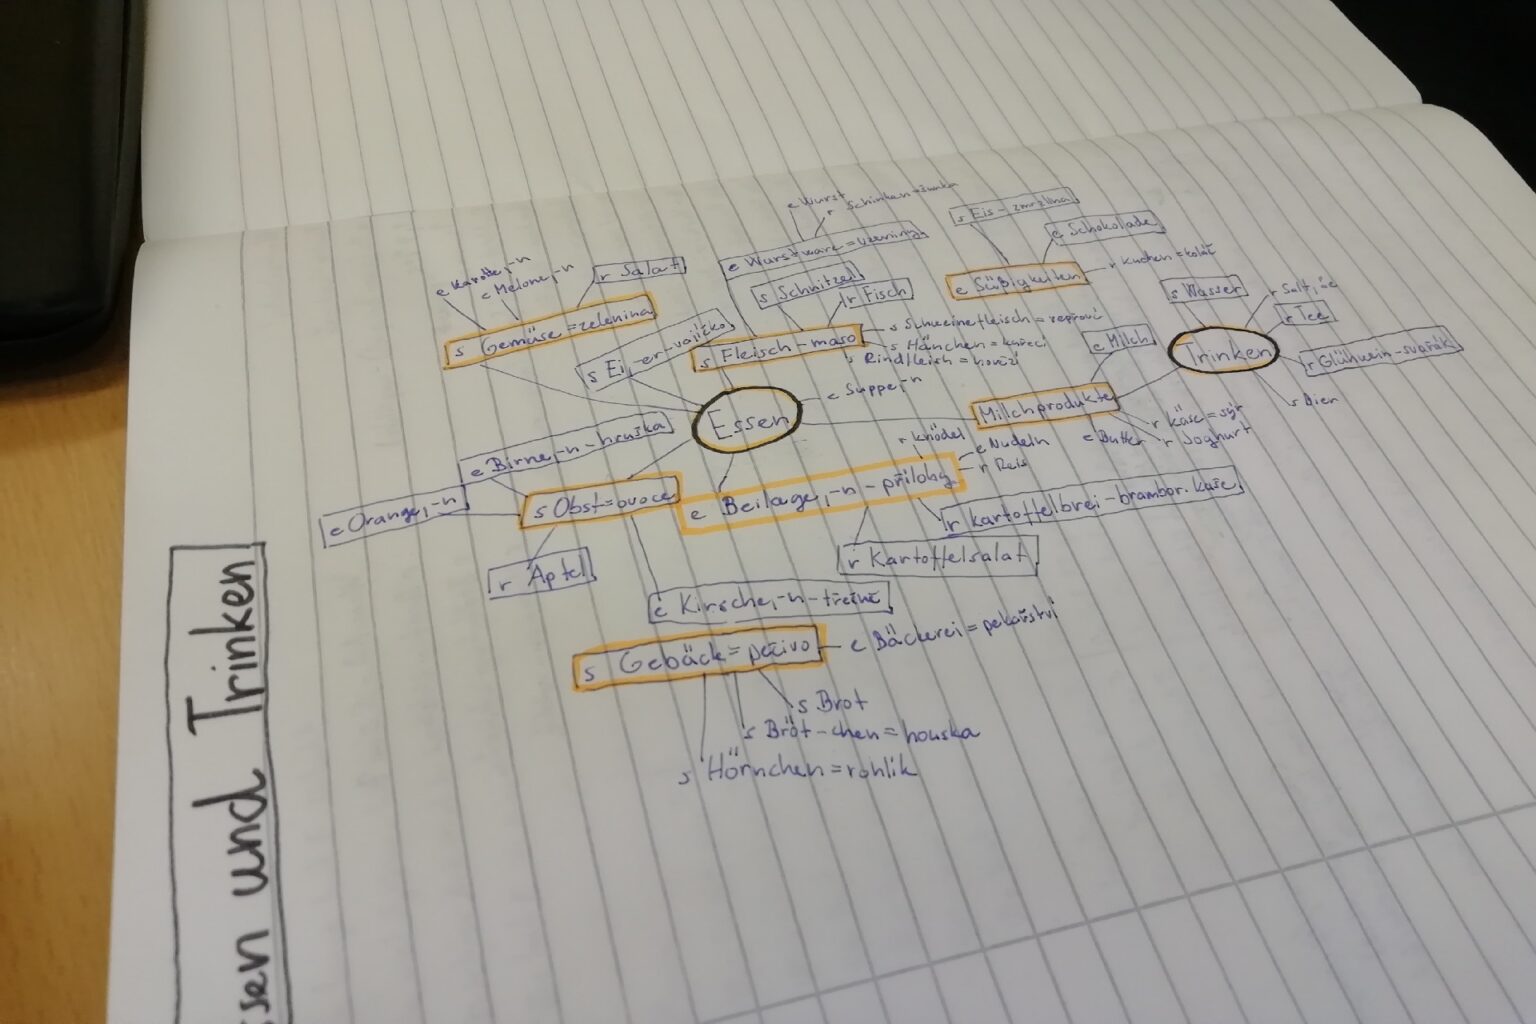 ssen und Trinken
e Wurst
r Schinken = šunka
e Wurstware = uzeniny
s Eis - zmrzlina
e Schokolade
r Kuchen = koláč
e Süßigkeiten
e Karotte, -n
e Melone, -n
r Salat
s Gemüse = zelenina
s Schnitzel
r Fisch
s Fleisch - maso
s Schweinefleisch = vepřové
s Hänchen = kuřecí
s Rindfleich = hovězí
s Ei, -er - vajíčko
s Wasser
r Saft,
r Tee
Trinken
r Glühwein - svařák
s Bier
e Milch
Milchprodukte
r Käse = sýr
r Joghurt
e Butter
e Suppe, -n
Essen
e Birne, -n - hruška
e Orange, -n
s Obst = ovoce
r Apfel
e Kirsche, -n - třešně
r Knödel
e Nudeln
r Reis
e Beilage, -n - přílohy
r Kartoffelbrei - brambor. kaše
r Kartoffelsalat
s Gebäck = pečivo
e Bäckerei = pekařství
s Brot
s Bröt-chen = houska
s Hörnchen = rohlík